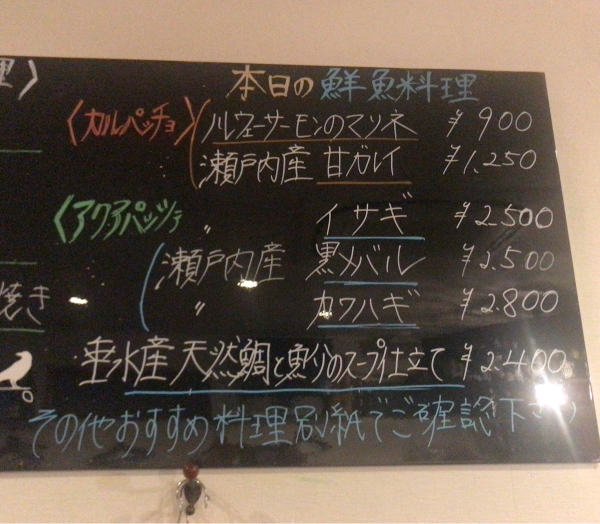 理〉
本日の鮮魚料理
〈カルパッチョ〉 ノルウェーサーモンのマリネ ¥900
瀬戸内産 甘ガレイ ¥1,250
〈アクアパッツァ 〃 イサギ ¥2.500
瀬戸内産 黒メバル ¥2.500
焼き 〃 カワハギ ¥2.800
垂水産 天然鯛と魚介のスープ仕立て ¥2.400
その他おすすめ料理別紙でご確認下さい